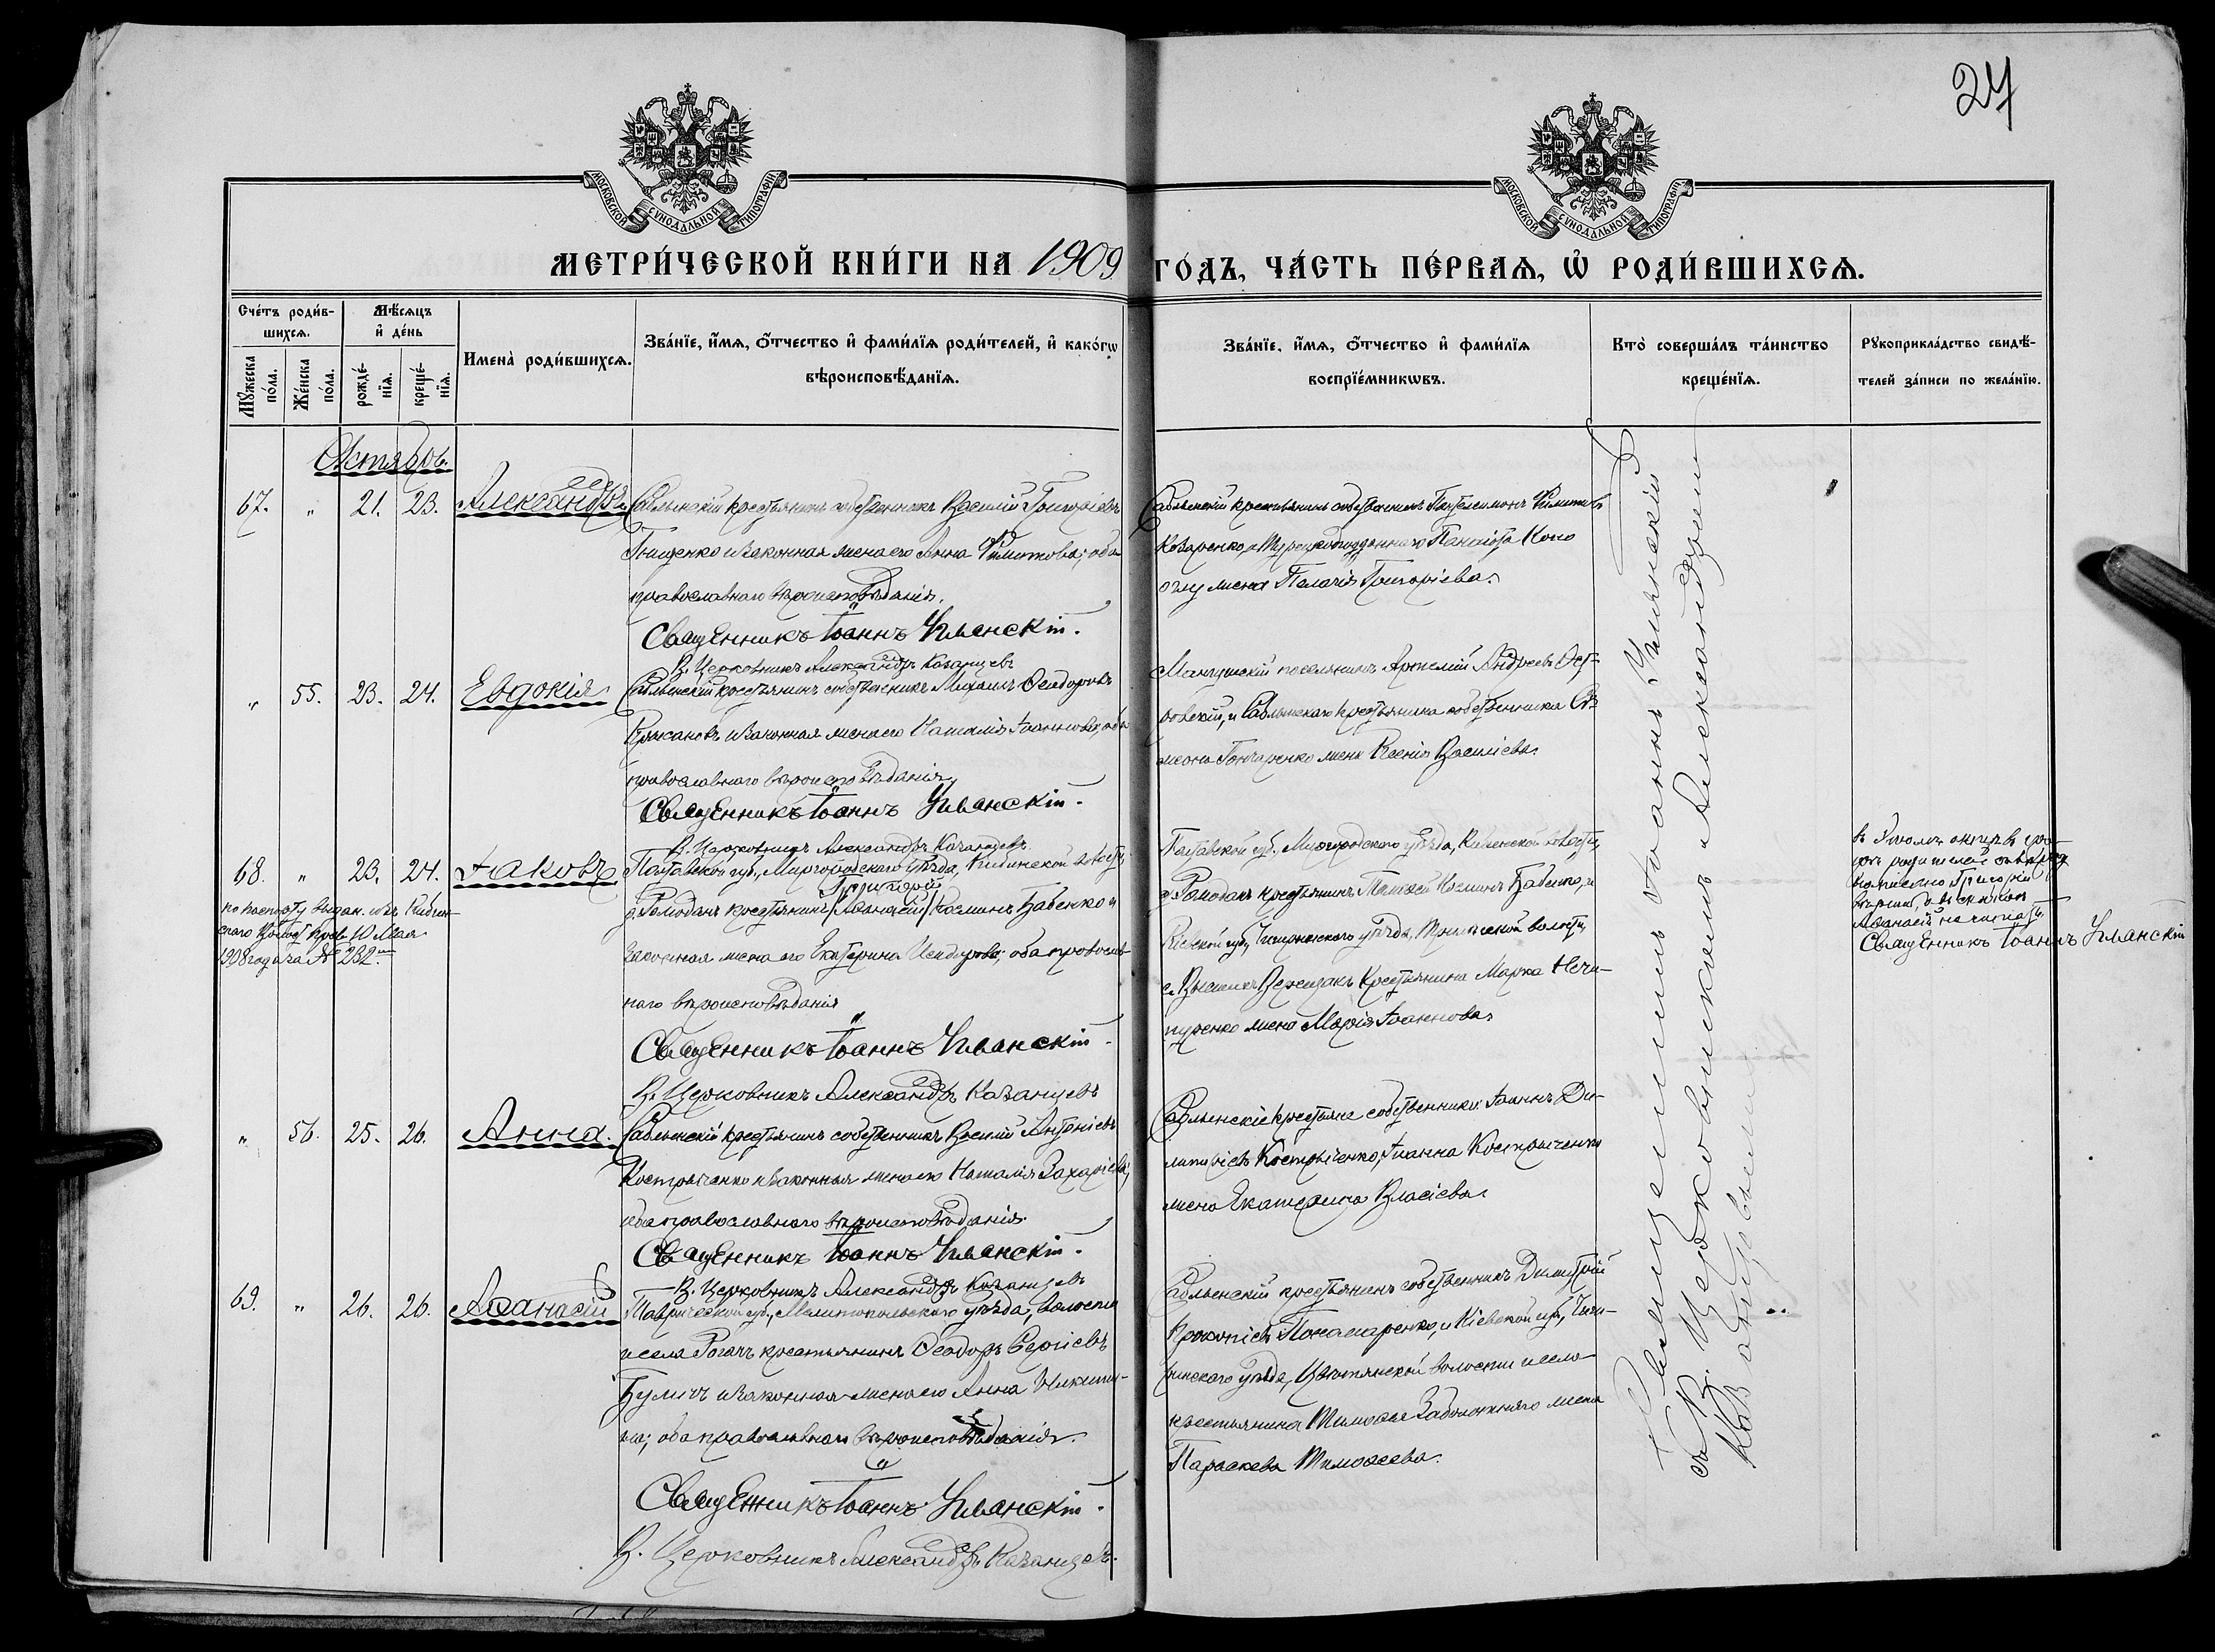 27
МОСКОВСКОЙ СУНОДАЛЬНОЙ ТИПОГРАФІИ
МОСКОВСКОЙ СУНОДАЛЬНОЙ ТИПОГРАФІИ
МЕТРИ́ЧЕСКОЙ КНИ́ГИ НА 1909 ГО́ДЪ, ЧА́СТЬ ПЕ́РВАѦ, Ѡ҆ РОДИ́ВШИХСѦ.
Сче́тъ роди́вшихсѧ.
Мꙋ́жеска по́ла.
Же́нска по́ла.
Мѣ́сѧцъ и҆ де́нь
рожде́нїѧ.
креще́нїѧ.
Имена̀ роди́вшихсѧ.
Зва́нїе, и҆́мѧ, ѻ҆́тчество и҆ фами́лїѧ роди́телей, и҆ како́гѡ
вѣроисповѣ́данїѧ.
Зва́нїе, и҆́мѧ, ѻ҆́тчество и҆ фами́лїѧ
воспрїе́мникѡвъ.
Кто̀ соверша́лъ та́инство
креще́нїѧ.
Рꙋкоприкла́дство свидѣ́-
телей за́писи по жела́нїю.
Октябрь.
67. " 21. 23. Александръ
Саблынскій крестьянинъ собственникъ Василій Григоріевъ
Гнищенко и законная жена его Анна Филиппова; оба
православнаго вѣроисповѣданія.
Священникъ Іоаннъ Уманскій.
В. Церковникъ Александръ Казанцевъ
Саблынскій крестьянинъ собственникъ Пантелеимонъ Филипповъ
Козаренко, и Турецкоподданнаго Панаіота Коно
оглу жена Пелагія Григоріева.
" 55. 23. 24. Евдокія
Саблынскій крестьянинъ собственникъ Михаилъ Ѳеодоровъ
и законная жена его Наталія Іоаннова; оба
православнаго вѣроисповѣданія
Священникъ Іоаннъ Уманскій.
В. Церковникъ Александръ Казанцевъ
Мангушскій поселянинъ Андреевъ Ост-
ровскій, и Саблынскаго крестьянина собственника Си-
меона Гончаренко жена Ксенія Васильева.
68. " 23. 24. Іаковъ
по паспорту выдан. изъ Кибин-
скаго Волост. Правл. 10 Мая
1908 года за № 232.
Полтавской губ., Миргородскаго уѣзда, Кибинской волости,
Григорій
д. Ромоданъ крестьянинъ /Аѳанасій/ Косминъ Бабенко и
законная жена его Екатерина Исидорова; оба православ-
наго вѣроисповѣданія
Священникъ Іоаннъ Уманскій.
В. Церковникъ Александръ Казанцевъ
Полтавской губ., Миргородскаго уѣзда, Кибинской волости,
д. Ромоданъ крестьянинъ Косминъ Бабенко, и
Кіевской губ., Чигринскаго уѣзда, волости,
с. крестьянина Марка Нечи-
пуренко жена Марія Іоаннова.
родителей
написано Григорій
Аѳанасій не читать.
Священникъ Іоаннъ Уманскій
" 56. 25. 26. Анна.
Саблынскій крестьянинъ собственникъ Василій Антоніевъ
Костриченко и законная жена его Наталія Захаріева;
оба православнаго вѣроисповѣданія.
Священникъ Іоаннъ Уманскій.
В. Церковникъ Александръ Казанцевъ
Саблынскіе крестьяне собственники: Іоаннъ Ди-
митріевъ Костриченко, Іоанна Костриченко
жена Екатерина Власіева.
69. " 26. 26. Аѳанасій
Таврической губ., Мелитопольскаго уѣзда, волости
и села Рогачъ крестьянинъ Ѳеодоръ Сергіевъ
и законная жена его Анна Никити-
на; оба православнаго вѣроисповѣданія.
Священникъ Іоаннъ Уманскій.
В. Церковникъ Александръ Казанцевъ.
Саблынскій крестьянинъ собственникъ Димитрій
Прокопіевъ Понамаренко, и Кіевской губ., Чиги-
ринскаго уѣзда, Цвѣтнянской волости и села
крестьянина Тимоѳея Заболотняго жена
Параскева Тимоѳеева.
Священникъ Іоаннъ Уманскій
съ В. Церковникомъ Александромъ
Казанцевымъ